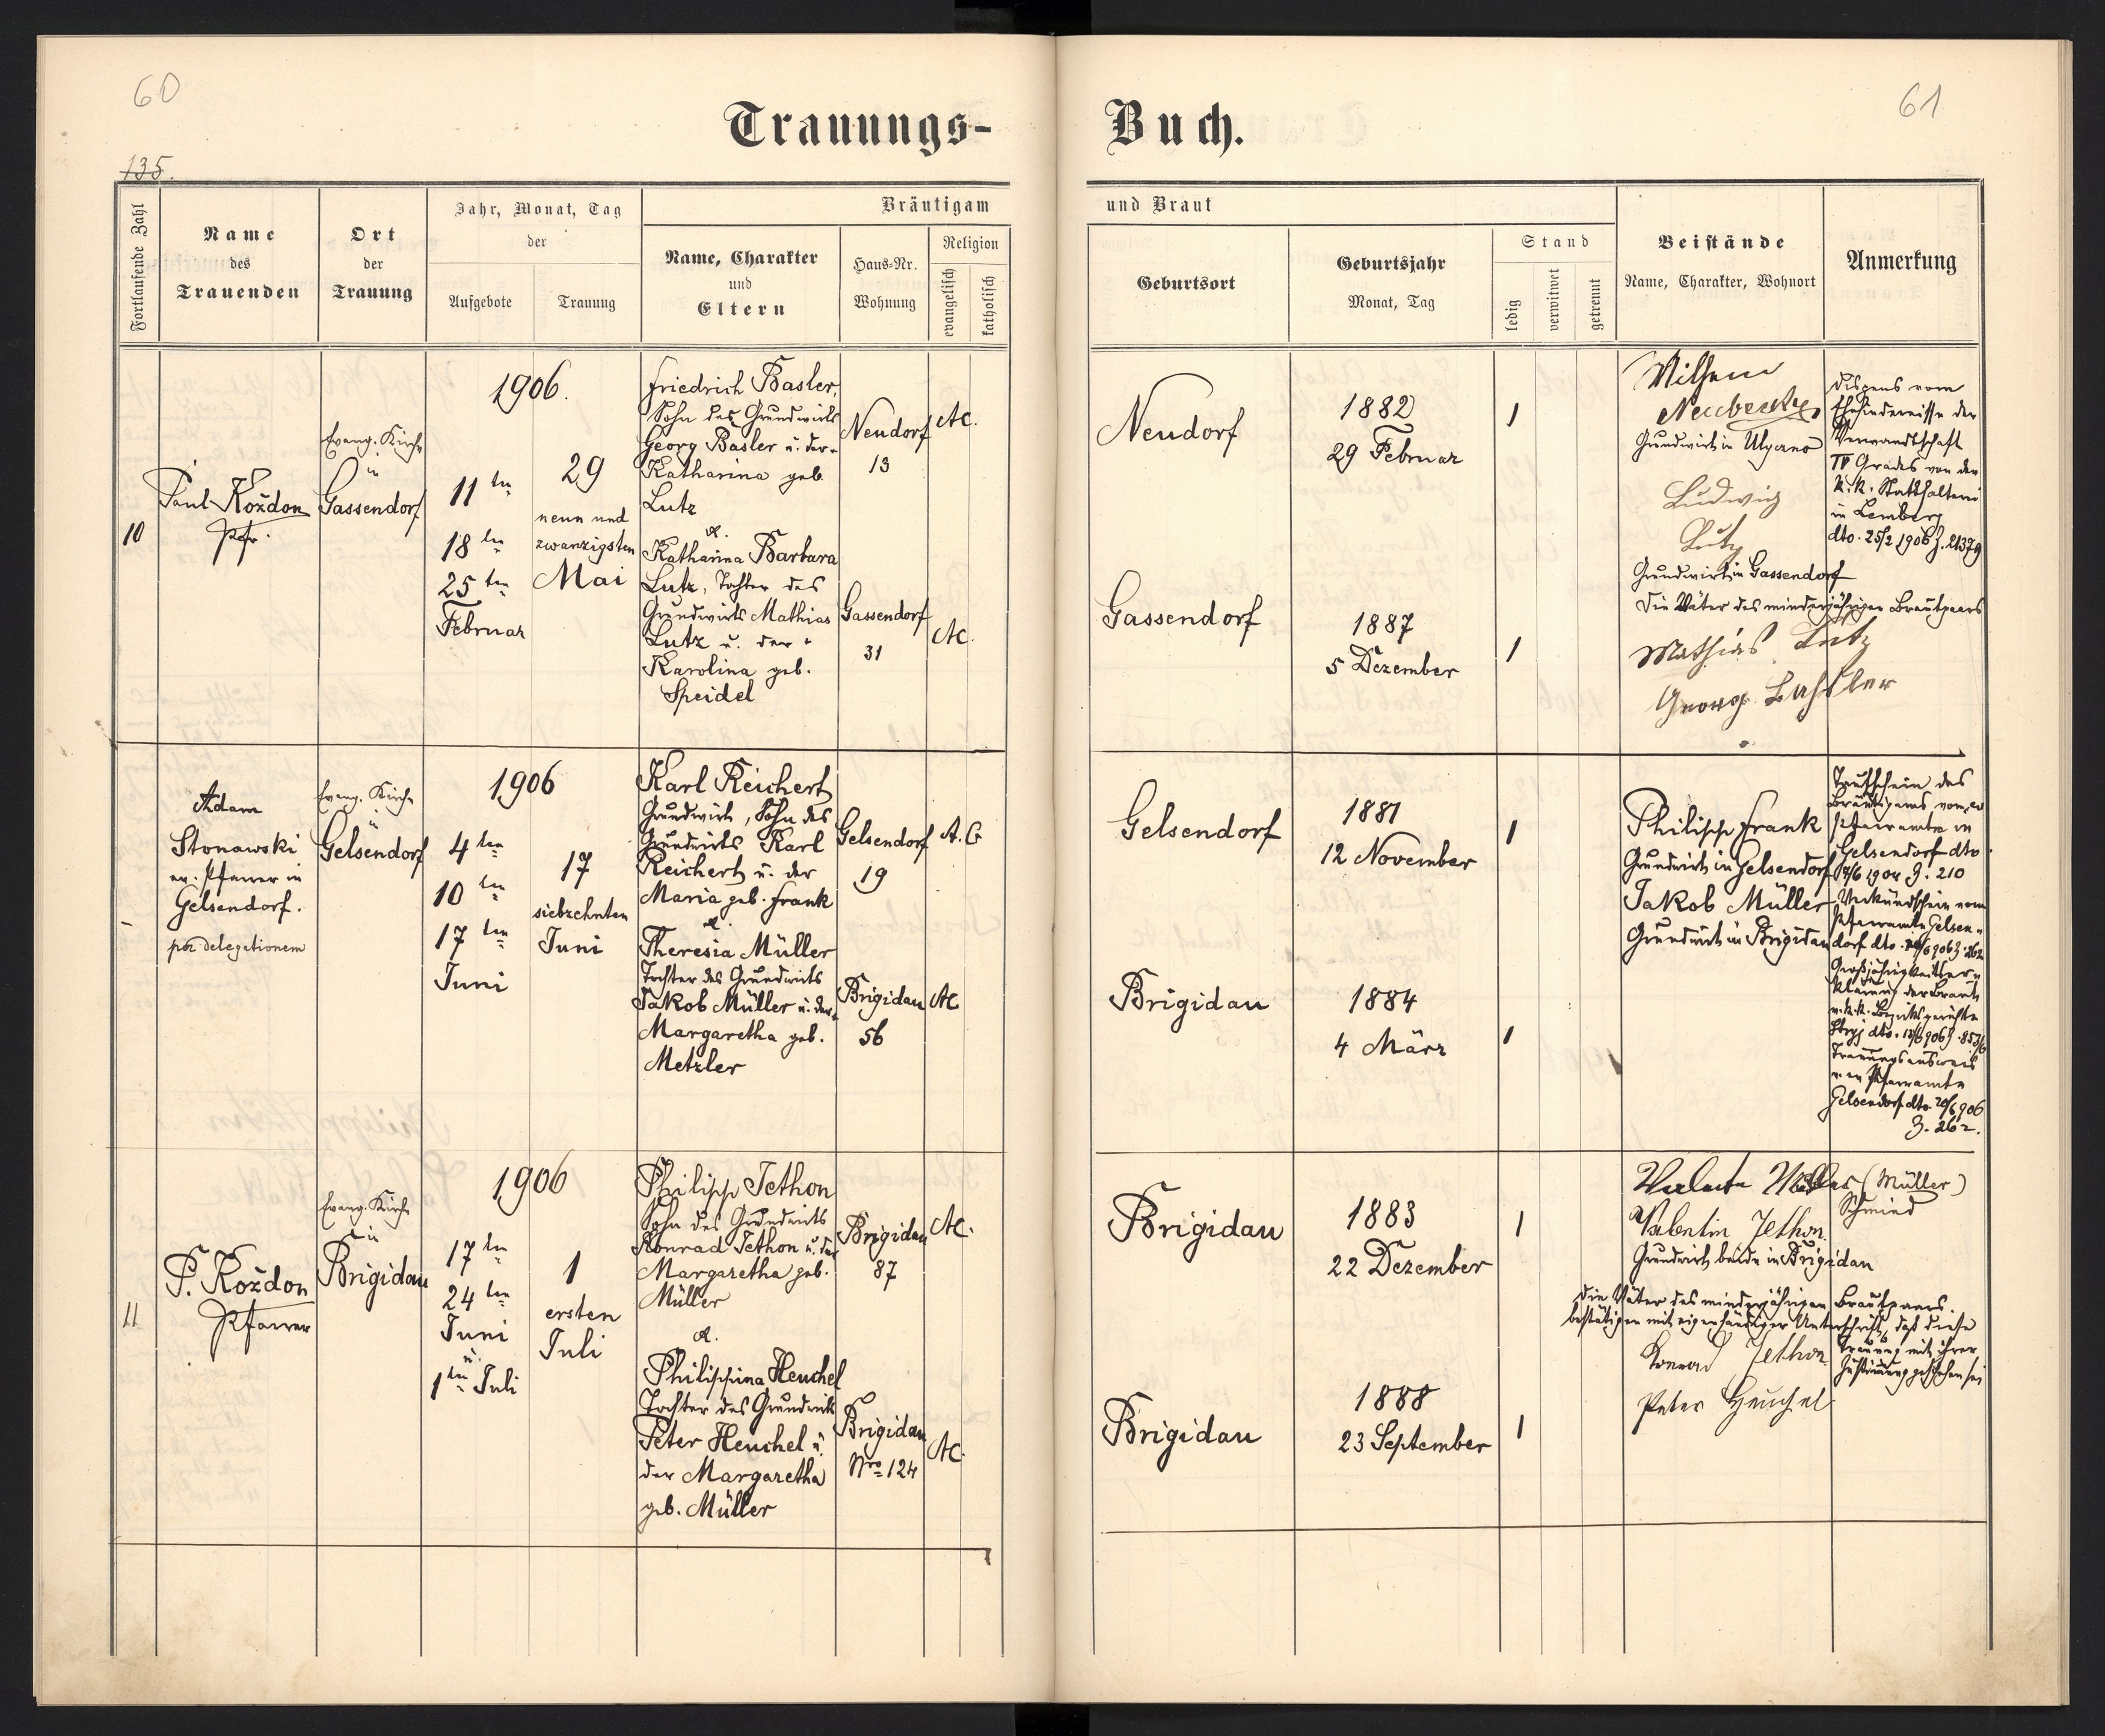 60
61
Trauungs-
Buch.
135.
Fortlaufende Zahl
Name
des
Trauenden
Ort
der
Trauung
Jahr, Monat, Tag
der
Aufgebote
Trauung
Bräutigam
Name, Charakter
und
Eltern
Haus-Nr.
Wohnung
Religion
evangelisch
katholisch
und Braut
Geburtsort
Geburtsjahr
Monat, Tag
Stand
ledig
verwitwet
getrennt
Beistände
Name, Charakter, Wohnort
Anmerkung
10
Paul Kożdon
Pfr.
Evang. Kirche
in
Gassendorf
1906.
11 ten
18 ten
25 ten
Februar
29
neun und
zwanzigsten
Mai
Friedrich Basler,
Sohn des Grundwirts
Georg Basler u. der
Katharina geb.
Lutz
&.
Katharina Barbara
Lutz, Tochter des
Grundwirts Mathias
Lutz u. der
Karolina geb.
Speidel
Neudorf
13
AC.
Gassendorf
31
AC.
Neudorf
1882
29 Februar
1
Gassendorf
1887
5 Dezember
1
Grundwirt in
Ludwig
Lutz
Grundwirt in Gassendorf
Die Väter des minderjährigen Brautpaars
Mathias Lutz
Georg Bassler
Dispens vom
Ehehindernisse der
Verwandtschaft
IV Grades von der
k. k. Statthalterei
in Lemberg
dto. 25/2 1906 Z. 21379
Adam
Stonawski
ev. Pfarrer in
Gelsendorf.
per delegationem
Evang. Kirche
in
Gelsendorf
1906
4 ten
10 ten
17 ten
Juni
17
siebzehnten
Juni
Karl Reichert
Grundwirt, Sohn des
Grundwirts Karl
Reichert u. der
Maria geb. Frank
&.
Theresia Müller
Tochter des Grundwirts
Jakob Müller u. der
Margaretha geb.
Metzler
Gelsendorf
19
A. C
Brigidau
56
AC
Gelsendorf
1881
12 November
1
Brigidau
1884
4 März
1
Philipp Frank
Grundwirt in Gelsendorf
Jakob Müller
Grundwirt in Brigidau
Taufschein des
Bräutigams vom ev
Pfarramte in
Gelsendorf dto
1904 Z. 210
Verkündschein vom
Pfarramte Gelsen-
dorf dto. 906 Z. 262
Großjährigkeitser-
klärung der Braut
v. k. k. Bezirksgerichte
Stryj dto. 13/6 906
Trauungsausweis
v. ev Pfarramte
Gelsendorf dto. 906
Z. 262.
11
P. Kożdon
Pfarrer
Evang. Kirche
in
Brigidau
1906
17 ten
24 ten
Juni
u.
1 ten Juli
1
ersten
Juli
Philipp Jethon
Sohn des Grundwirts
Konrad Jethon u. der
Margaretha geb.
Müller
&.
Philippina Heuchel
Tochter des Grundwirts
Peter Heuchel u.
der Margaretha
geb. Müller
Brigidau
87
AC.
Brigidau
Nro 124
AC.
Brigidau
1883
22 Dezember
1
Brigidau
1888
23 September
1
(Müller)
Schmied
Valentin Jethon.
Grundwirt beide in Brigidau
Die Väter des minderjährigen Brautpaars.
bestätigen mit eigenhändiger Unterschrift, daß diese
Trauung mit ihrer
Zustimmung geschehen sei
Konrad Jethon
Peter Heuchel